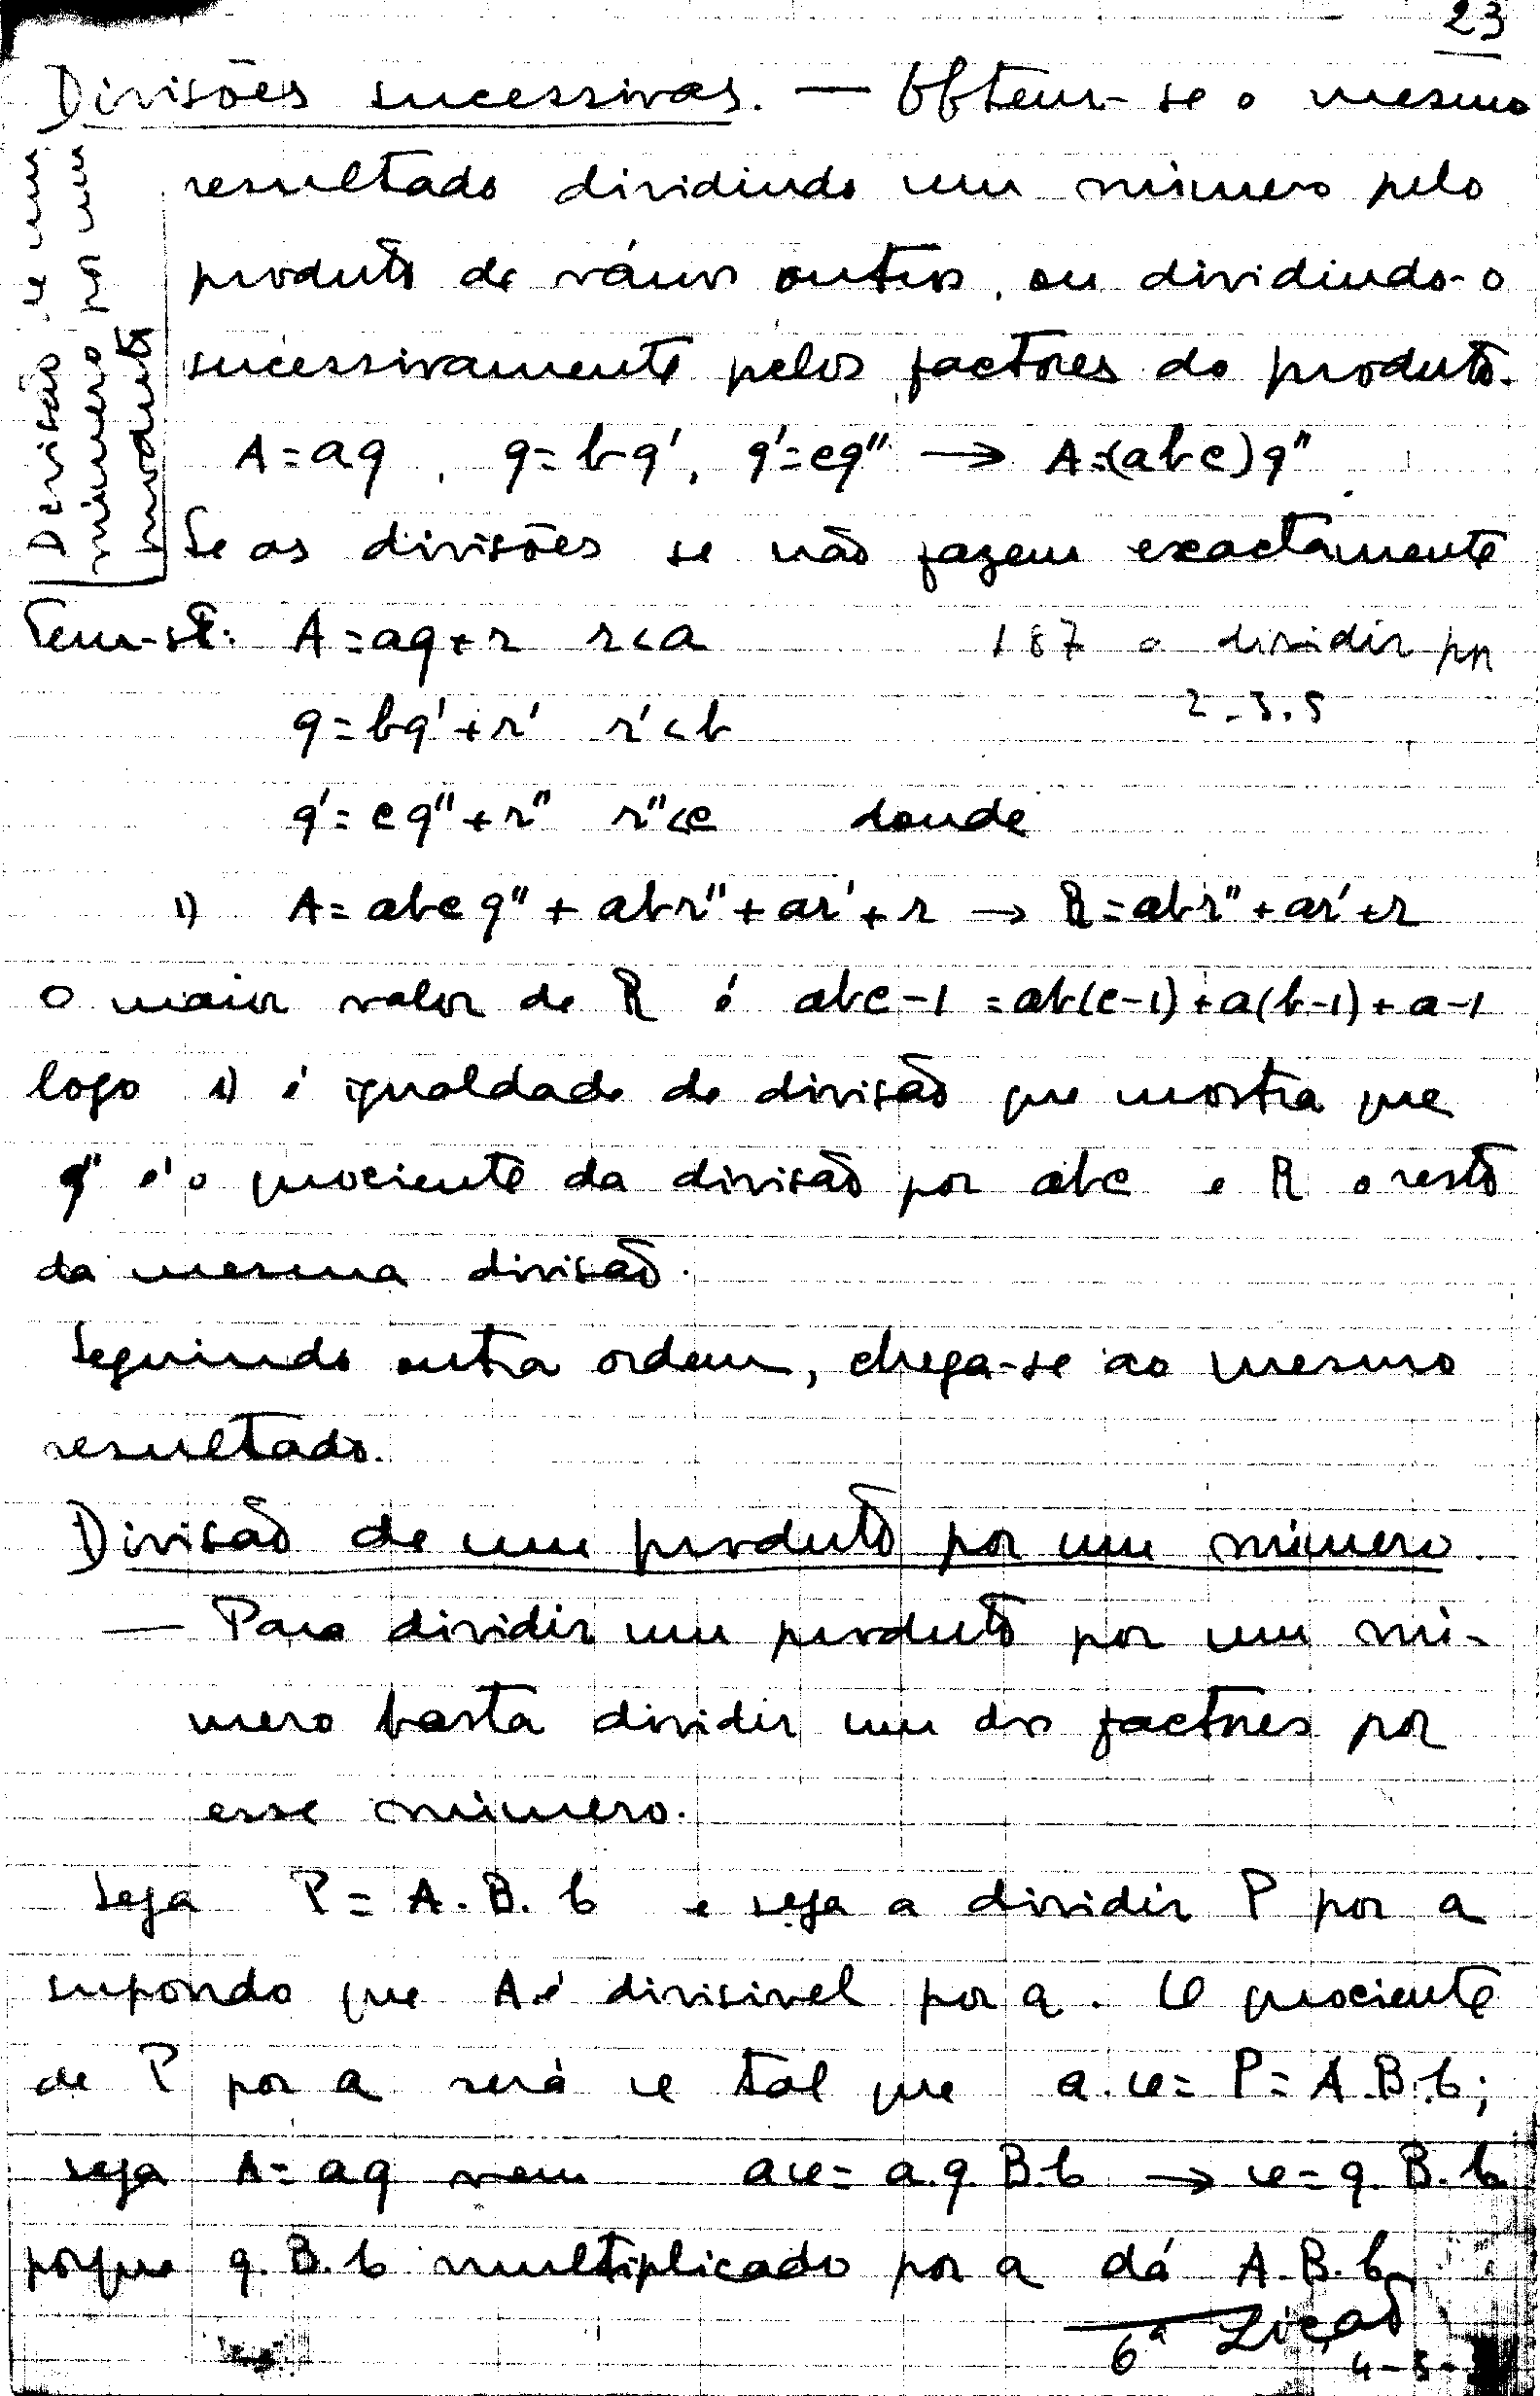 23
Divisões sucessivas. — Obtem-se o mesmo
resultado dividindo um número pelo
produto de vários outros, ou dividindo-o
sucessivamente pelos factores do produto.
Divisão de um
número por um
produto
A=aq, q=bq', q'=cq'' → A=(abc)q''
Se as divisões se não fazem exactamente
Tem-se: A=aq+r r<a
187 a dividir por
2.3.5
q=bq'+r' r'<b
q'=cq''+r'' r''<c donde
1) A=abcq''+abr''+ar'+r → R=abr''+ar'+r
O maior valor de R é abc-1=ab(c-1)+a(b-1)+a-1
logo 1) é igualdade de divisão que mostra que
q'' é o quociente da divisão por abc e R o resto
da mesma divisão.
Seguindo outra ordem, chega-se ao mesmo
resultado.
Divisão de um produto por um número
— Para dividir um produto por um nú-
mero basta dividir um dos factores por
esse número.
Seja P = A.B.C e seja a dividir P por a
supondo que A é divisivel por a. O quociente
de P por a será Q tal que a.Q = P = A.B.C;
seja A=aq vem aQ = a.q.B.C → Q=q.B.C
porque q.B.C multiplicado por a dá A.B.C
6ª Lição
4-5-